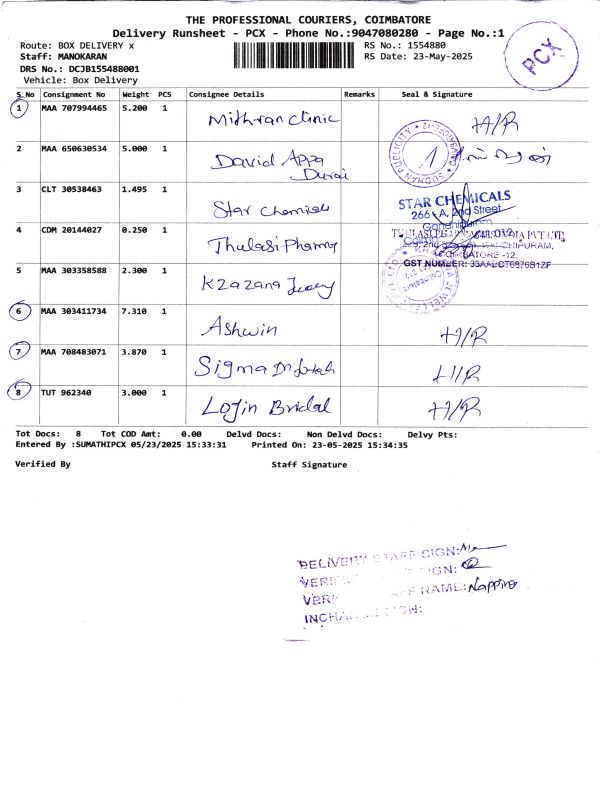 THE PROFESSIONAL COURIERS, COIMBATORE
Delivery Runsheet - PCX - Phone No.:9047080280 - Page No.:1
Route: BOX DELIVERY x
RS No.: 1554880
PCX
Staff: MANOKARAN
RS Date: 23-May-2025
DRS No.: DCJB155488001
Vehicle: Box Delivery
S.No Consignment No Weight PCS Consignee Details Remarks Seal & Signature
1 MAA 707994465 5.200 1 Mithran Clinic H/R
2 MAA 650630534 5.000 1 David Appa Durai
SUDHAN PUBLICITY
3 CLT 30538463 1.495 1 Star Chemicals
STAR CHEMICALS
266 A, 2nd Street
4 CDM 20144027 0.250 1 Thulasi Pharmy
GST NUMBER: 33AAECT6876B1ZF
5 MAA 303358588 2.300 1 Kzazana
6 MAA 303411734 7.310 1 Ashwin H/R
7 MAA 708483071 3.870 1 Sigma H/R
8 TUT 962340 3.000 1 Login Bridal H/R
Tot Docs: 8 Tot COD Amt: 0.00 Delvd Docs: Non Delvd Docs: Delvy Pts:
Entered By :SUMATHIPCX 05/23/2025 15:33:31 Printed On: 23-05-2025 15:34:35
Verified By Staff Signature
DELIVERY STAFF SIGN:
SIGN:
NAME:
SIGN: